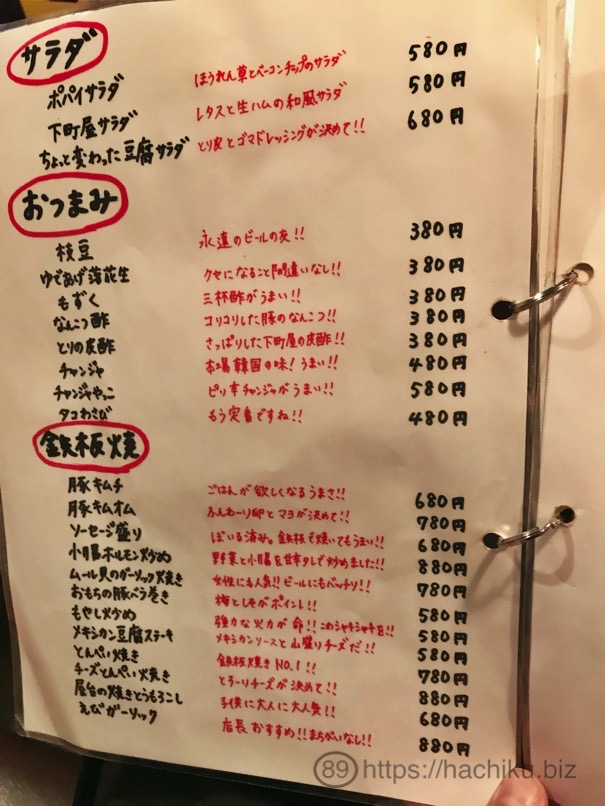 サラダ
ポパイサラダ ほうれん草とベーコンチップのサラダ 580円
下町屋サラダ レタスと生ハムの和風サラダ 580円
ちょっと変わった豆腐サラダ とり皮とゴマドレッシングが決めて!! 680円
おつまみ
枝豆 永遠のビールの友!! 380円
ゆであげ落花生 クセになること間違いなし!! 380円
もずく 三杯酢がうまい!! 380円
なんこつ酢 コリコリした豚のなんこつ!! 380円
とりの皮酢 さっぱりした下町屋の皮酢!! 380円
チャンジャ 本場韓国の味!うまい!! 480円
チャンジャやっこ ピリ辛チャンジャがうまい!! 580円
タコわさび もう定番ですね!! 480円
鉄板焼
豚キムチ ごはんが欲しくなるうまさ!! 680円
豚キムオム ふんわーり卵とマヨが決めて!! 780円
ソーセージ盛り ぼいる済み。鉄板で焼いてもうまい!! 680円
小腸ホルモン炒め 野菜と小腸を甘辛タレで炒めました!! 880円
ムール貝のガーリック焼き 女性にも人気!!ビールにもバッチリ!! 780円
おもちの豚バラ巻き 梅としそがポイント!! 580円
もやし炒め 強力な火力が命!!このシャキシャキを!! 580円
メキシカン豆腐ステーキ メキシカンソースと山盛りチーズだ!! 580円
とんぺい焼き 鉄板焼きNO.1!! 780円
チーズとんぺい焼き とろーりチーズが決めて!! 880円
屋台の焼きとうもろこし 子供に大人に大人気!! 680円
えびガーリック 店長おすすめ!!まちがいなし!! 880円
89 https://hachiku.biz